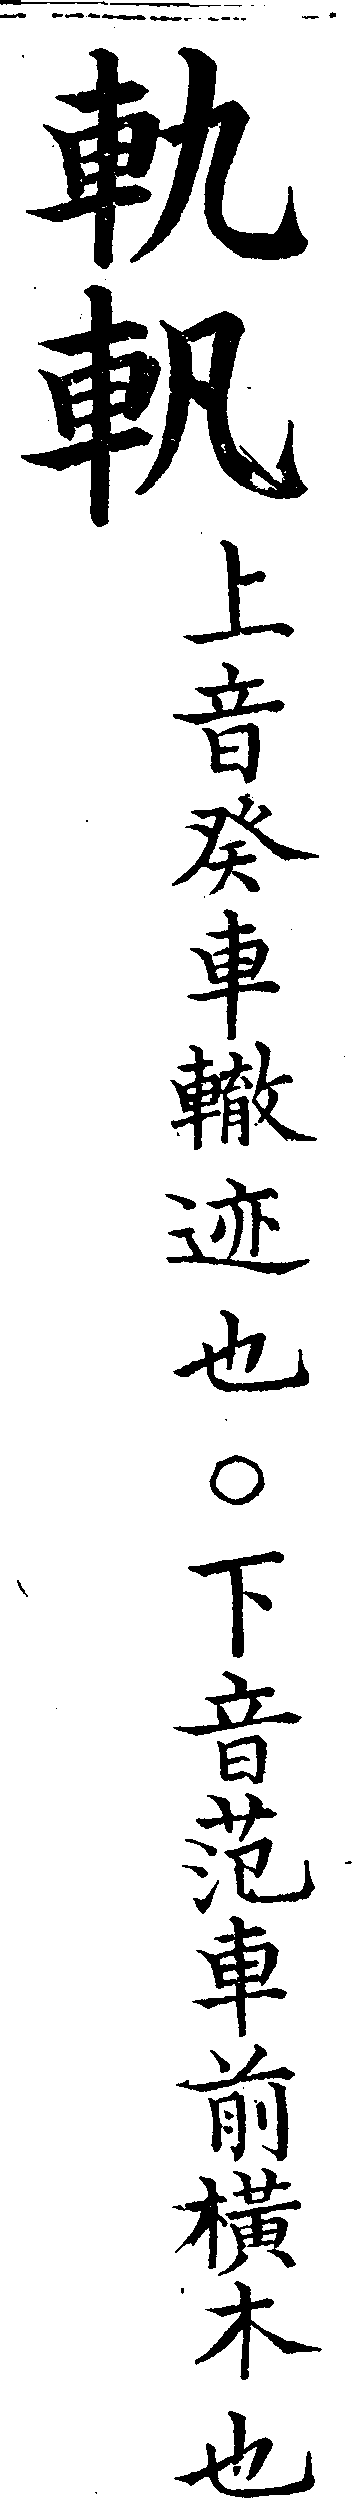 軌軓
上音癸車轍迹也○下音范車前橫木也